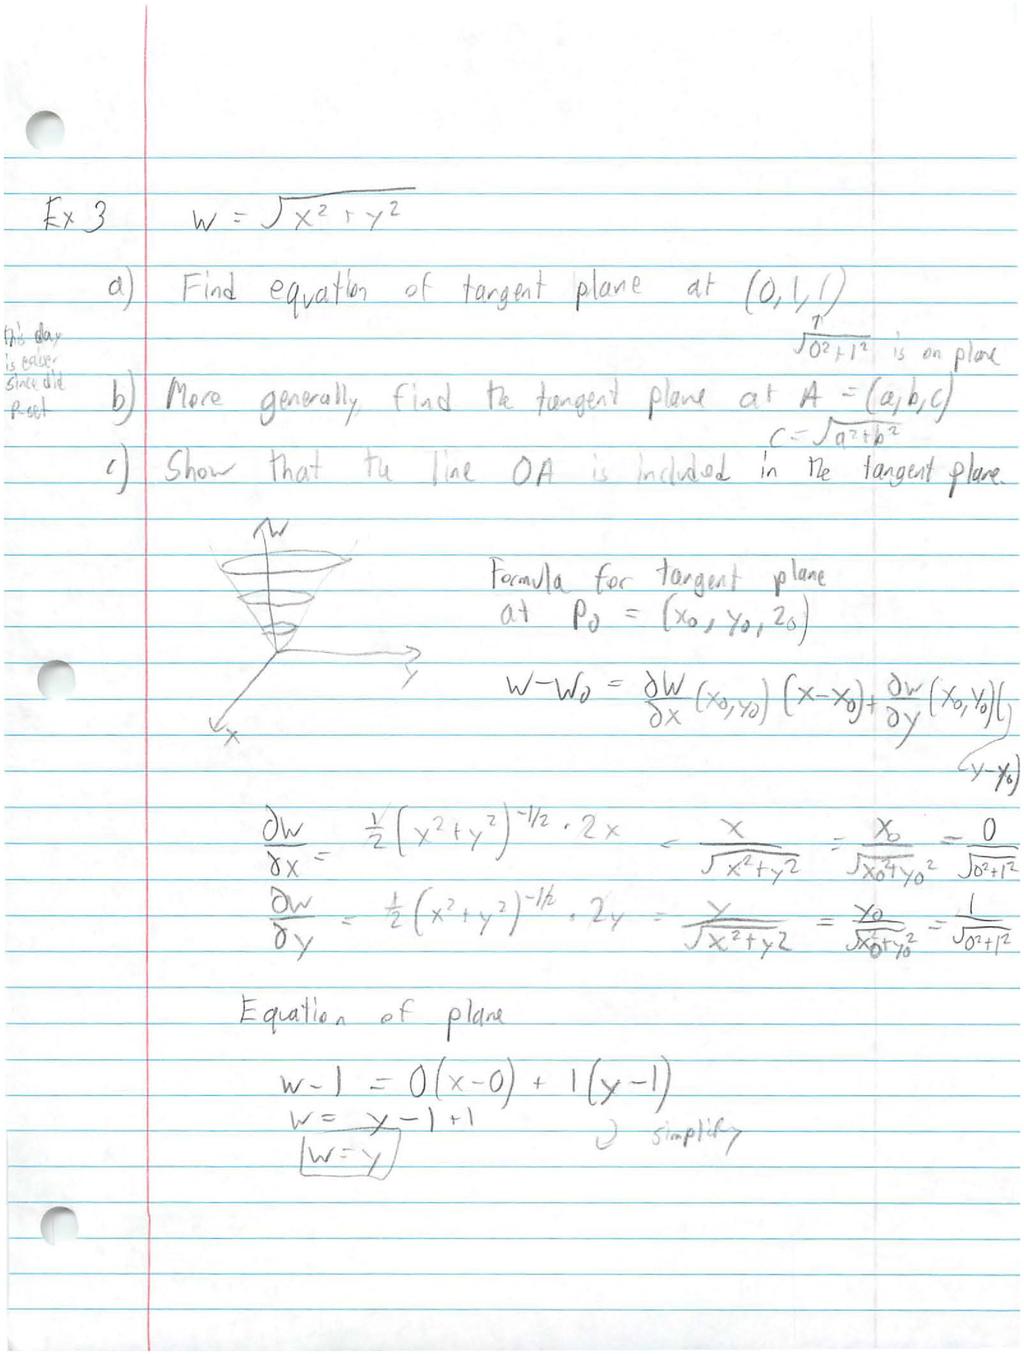 Ex 3 w = √x² + y²
a) Find equation of tangent plane at (0,1,1)
↑
√0²+1² is on plane
this day
is easier
since did
p-set
b) More generally, find the tangent plane at A = (a,b,c)
c = √a²+b²
c) Show that the line OA is included in the tangent plane.
W
Y
X
Formula for tangent plane
at P₀ = (x₀, y₀, z₀)
w-w₀ = ∂w/∂x (x₀,y₀) (x-x₀) + ∂w/∂y (x₀,y₀)(
y-y₀)
∂w/∂x = 1/2 (x²+y²)^(-1/2) · 2x = x/√x²+y² = x₀/√x₀²+y₀² = 0/√0²+1²
∂w/∂y = 1/2 (x²+y²)^(-1/2) · 2y = y/√x²+y² = y₀/√x₀²+y₀² = 1/√0²+1²
Equation of plane
w-1 = 0(x-0) + 1(y-1)
w = y-1+1
simplify
w=y